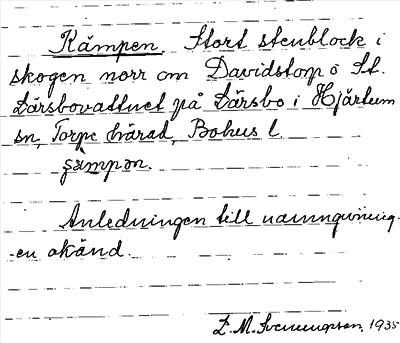 Kämpen. Stort stenblock i
skogen norr om Davidstorp o St.
Lärsbovattnet på Lärsbo i Hjärtum
sn, Torpe härad, Bohus l.
Anledningen till namngivning-
-en okänd.
L. M. Svenungsson, 1935